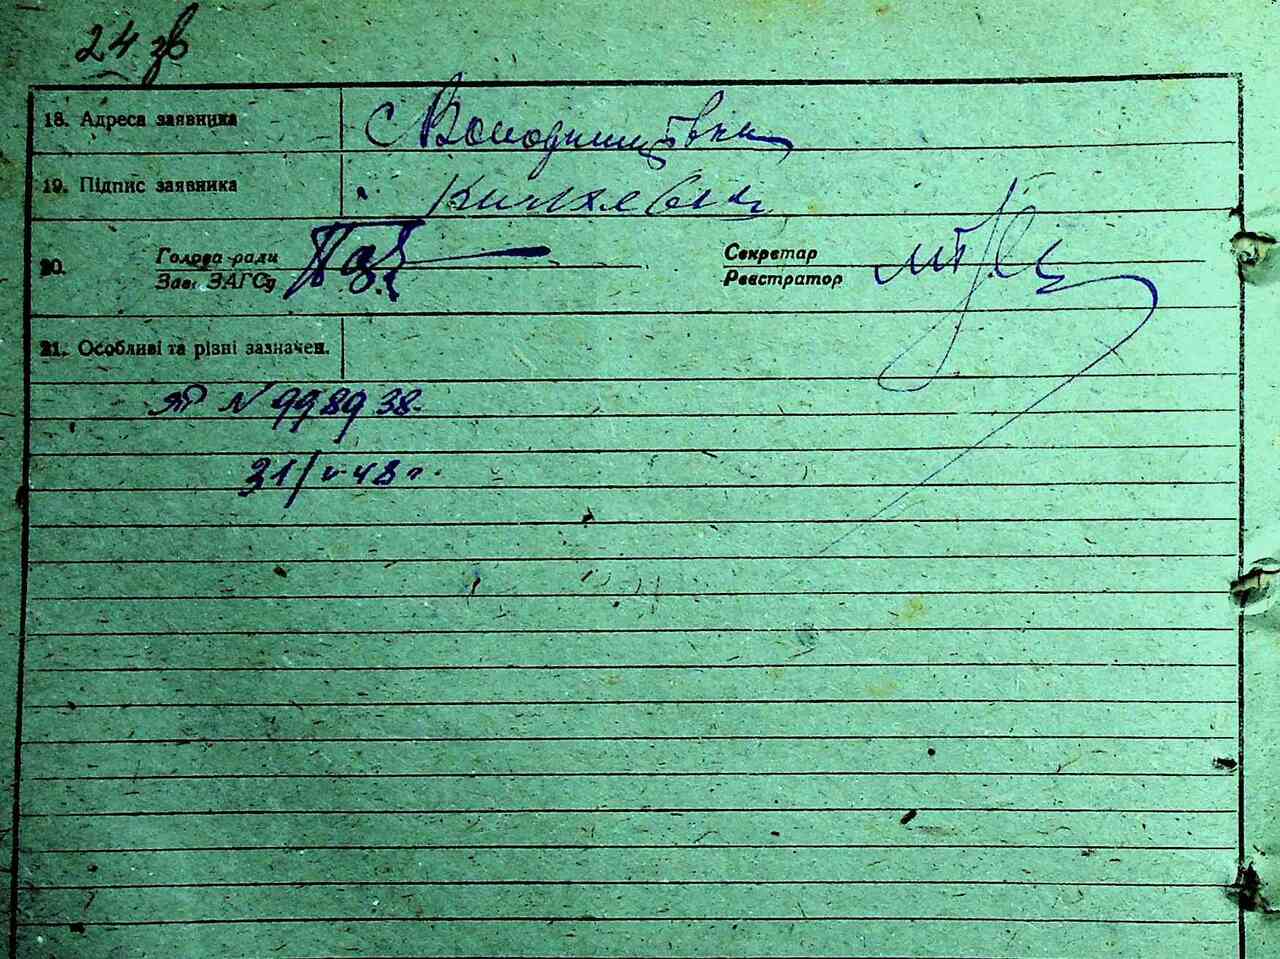 24 зв
18. Адреса заявника с Володимирівка
19. Підпис заявника
20. Голова ради Секретар
Зав. ЗАГСу Реєстратор
21. Особливі та різні зазначен.
ЯР N 998938.
31/V-48 г.